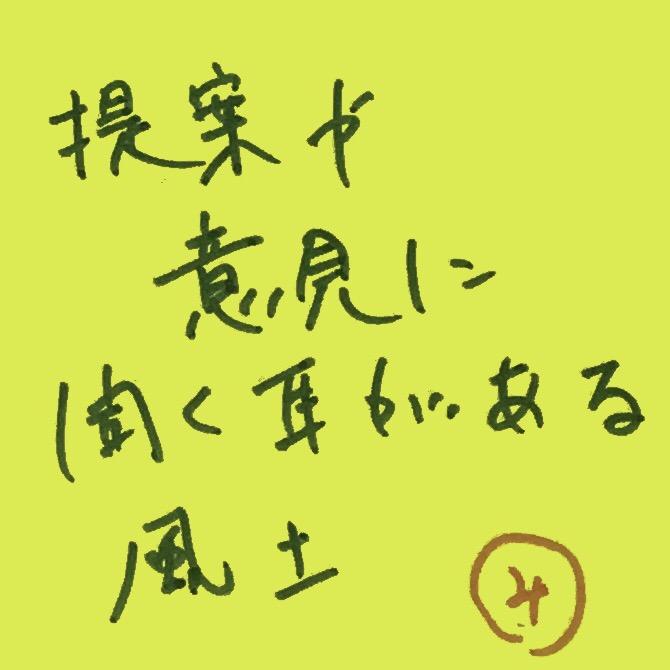 提案や
意見に
聞く耳がある
風土